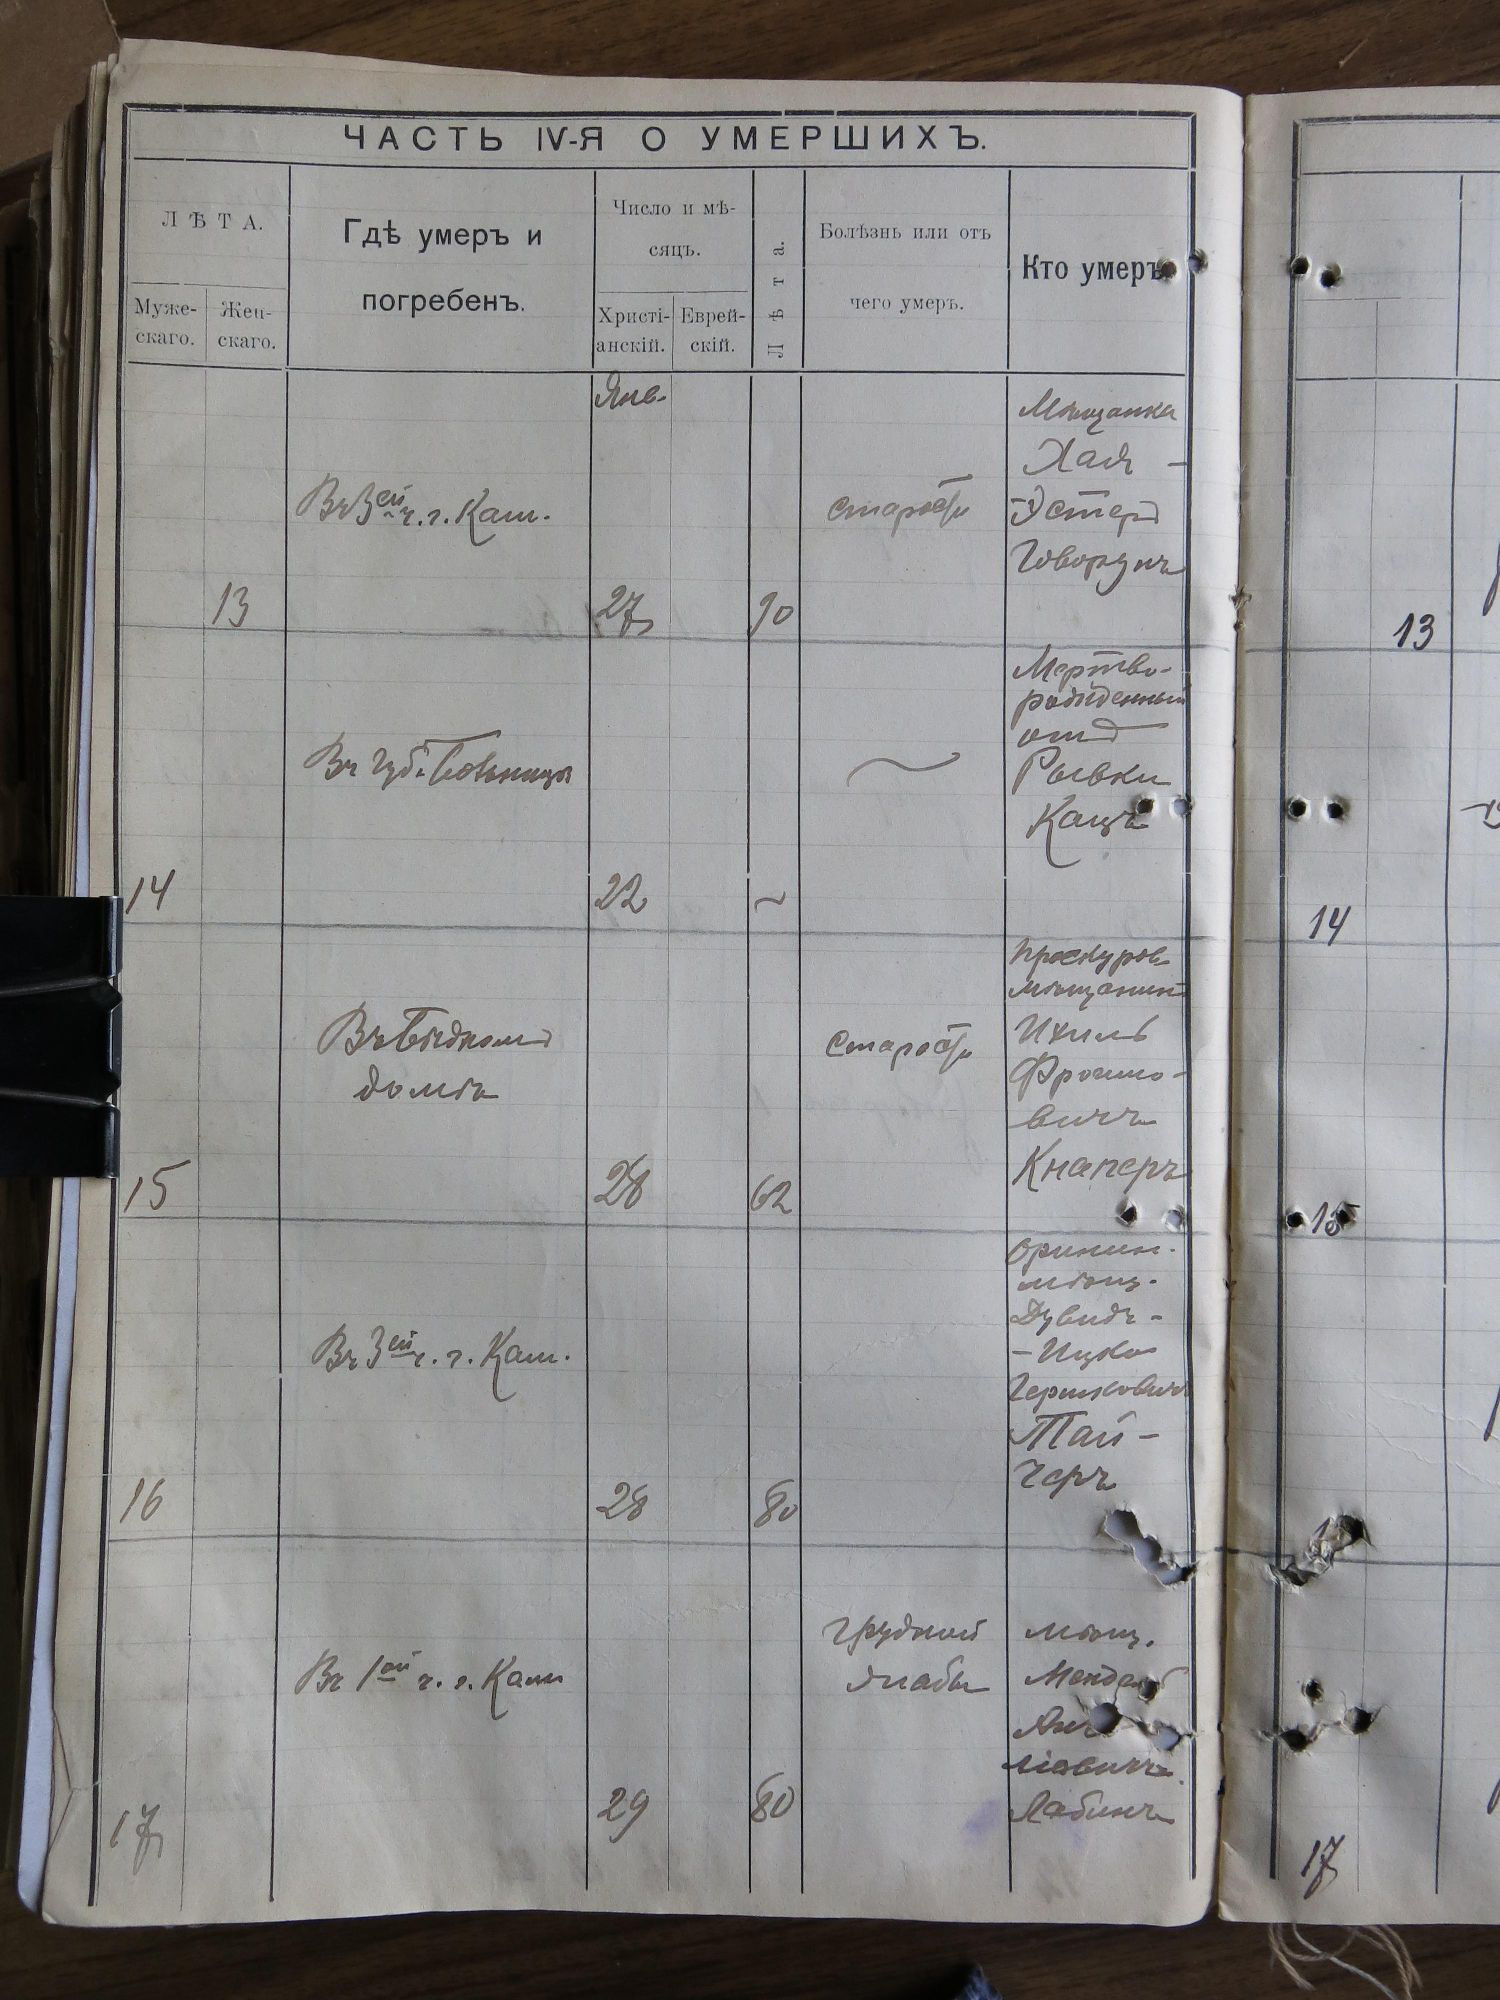 ЧАСТЬ IV-Я О УМЕРШИХЪ.
ЛѢТА.
Муже-
скаго.
Жен-
скаго.
Гдѣ умеръ и
погребенъ.
Число и мѣ-
сяцъ.
Христі-
анскій.
Еврей-
скій.
Лѣта.
Болѣзнь или отъ
чего умеръ.
Кто умеръ
Янв.
13
Въ 3ей ч. г. Кам.
27
90
старость
Мѣщанка
Хая -
-Эстеръ
Говорунъ
13
14
Въ губ. больницѣ
22
~
~
Мертво-
рожденный
отъ
Рывки
Кацъ
14
15
Въ бѣдномъ
домѣ
28
62
старость
Проскуров.
мѣщанинъ
Ихиль
Фроимо-
вичъ
Кнаперъ
15
16
Въ 3ей ч. г. Кам.
28
80
Оринин.
мѣщ.
Дувидъ -
- Ицко
Гершковичъ
Тай-
черъ
17
Въ 1ой ч. г. Кам
29
80
грудной
жабы
мѣщ.
17